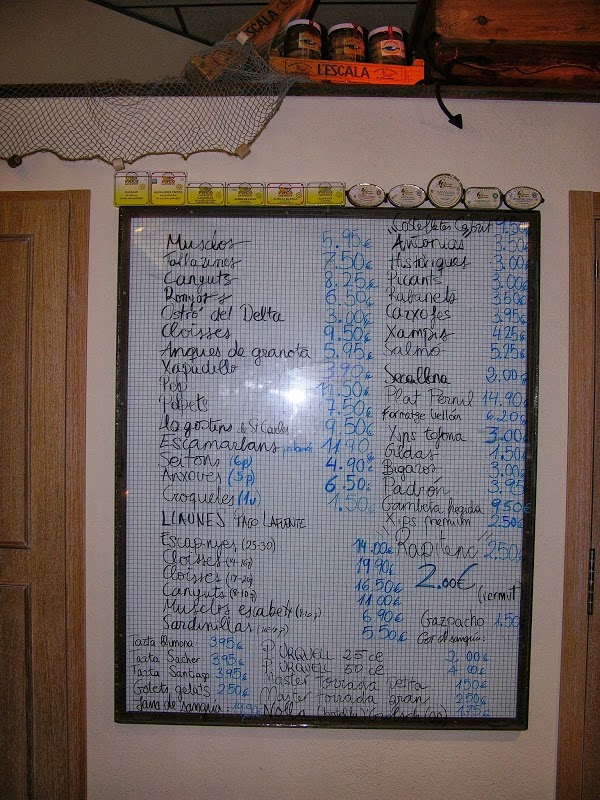 ESCALA
L'ESCALA
Musclos 5.95€
Tallarines 7.50€
Canyuts 8.25€
Ronyós 6.50€
Ostró del Delta 3.00€
Cloïsses 9.50€
Anques de granota 5.95€
Xapadillo 3.90€
Pop 11.50€
Popets 7.50€
Llagostins de St Carles 9.50€
Escamarlans 11.90
Seitons (6p) 4.90€
Anxoves (5p) 6.50€
Croquetes (1u) 1.50€
LLAUNES PACO LAFUENTE
Escopinyes (25-30) 14.00€
Cloïsses 19.90€
Cloïsses (17-20) 16.50€
Canyuts (8-10p) 11.00€
Musclos escabetx (8-10p) 6.90€
Sardinillas 5.50€
Costelletes Cabrit 9.50€
Antonias 3.50€
Històriques 3.00€
Picants 3.00€
Rabanets 3.50€
Carxofes 3.95€
Xampis 4.25€
Salmó 5.25€
Secallona 2.00€
Plat Pernil 14.90€
Formatge 6.20€
Xips tòfona 3.00€
Gildas 1.50€
Bígaros 3.00€
Padrón 3.95
Gambeta 9.50€
Xips premium 2.50€
"Rapitenc" 2.50€
2.00€ (vermut)
Gazpacho 1.50
Got de sangria:
Tarta 3.95€
Tarta Sacher 3.95€
Tarta Santiago 3.95€
Gotets gelats 2.50€
Jarra de sangria: 19.95€
P. URQUELL 25 cc 2.00€
P. URQUELL 50 cc 4.00€
Master torrada petita 1.50€
Master torrada gran 2.50€
Nolla 1.75€